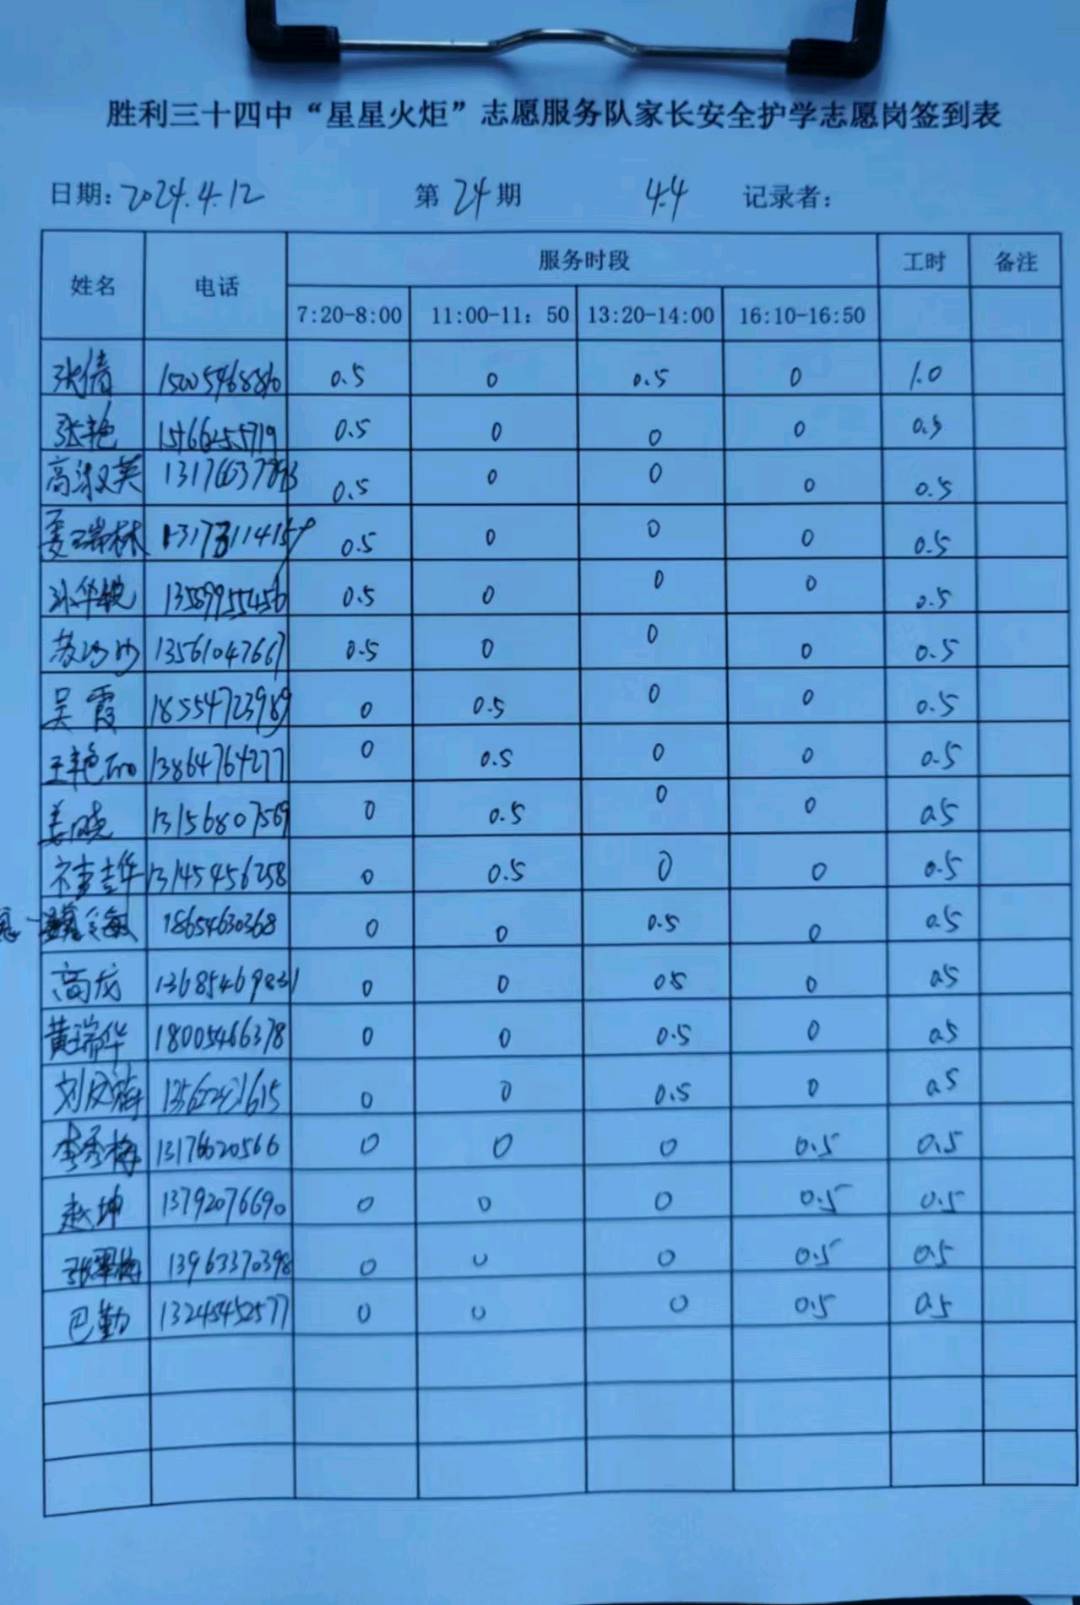 胜利三十四中“星星火炬”志愿服务队家长安全护学志愿岗签到表
日期: 2024.4.12 第 24 期 4.4 记录者:
姓名 电话 服务时段 工时 备注
7:20-8:00 11:00-11：50 13:20-14:00 16:10-16:50
张倩 0.5 0 0.5 0 1.0
张艳 0.5 0 0 0 0.5
高淑英 0.5 0 0 0 0.5
姜瑞林 0.5 0 0 0 0.5
13589955456 0.5 0 0 0 0.5
苏沙沙 13561047667 0.5 0 0 0 0.5
吴霞 18554723989 0 0.5 0 0 0.5
王艳 13864764277 0 0.5 0 0 0.5
姜晓 13156807569 0 0.5 0 0 0.5
13145456258 0 0.5 0 0 0.5
18654630368 0 0 0.5 0 0.5
高龙 0 0 0.5 0 0.5
黄瑞华 18005466378 0 0 0.5 0 0.5
刘凤梅 0 0 0.5 0 0.5
李秀梅 13176620566 0 0 0 0.5 0.5
赵坤 13792076690 0 0 0 0.5 0.5
张翠梅 13963370398 0 0 0 0.5 0.5
巴勤 13245452577 0 0 0 0.5 0.5